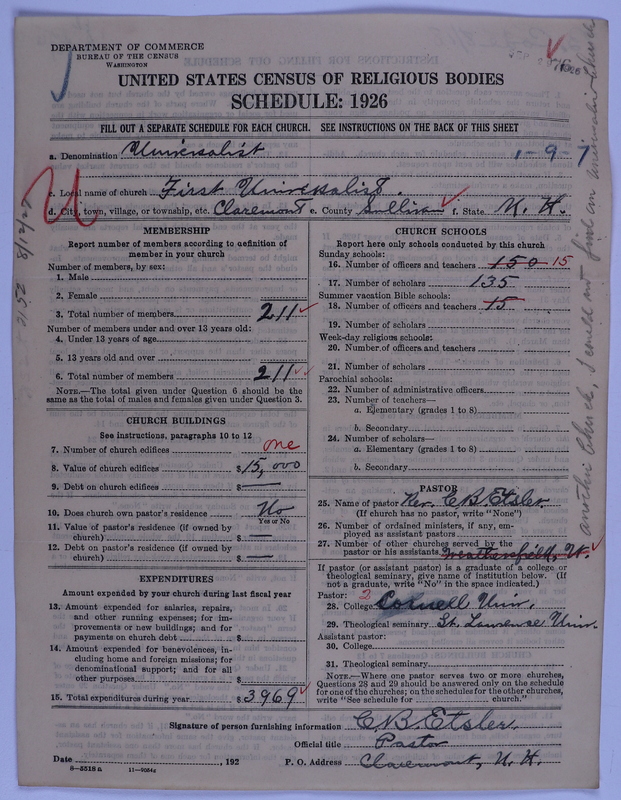 DEPARTMENT OF COMMERCE
BUREAU OF THE CENSUS
WASHINGTON
UNITED STATES CENSUS OF RELIGIOUS BODIES
SCHEDULE: 1926
FILL OUT A SEPARATE SCHEDULE FOR EACH CHURCH. SEE INSTRUCTIONS ON THE BACK OF THIS SHEET
a. Denomination Universalist 1-9-7
U
c. Local name of church First Universalist.
d. City, town, village, or township, etc. Claremont e. County Sullivan f. State N. H.
MEMBERSHIP
Report number of members according to definition of
member in your church
Number of members, by sex:
1. Male
2. Female
3. Total number of members 211
Number of members under and over 13 years old:
4. Under 13 years of age
5. 13 years old and over
6. Total number of members 211
NOTE.—The total given under Question 6 should be
same as the total of males and females given under Question 3.
CHURCH BUILDINGS
See instructions, paragraphs 10 to 12
7. Number of church edifices one
8. Value of church edifices $15,000
9. Debt on church edifices $—
10. Does church own pastor's residence? No
Yes or No
11. Value of pastor's residence (if owned by
church) $—
12. Debt on pastor's residence (if owned by
church) $—
EXPENDITURES
Amount expended by your church during last fiscal year
13. Amount expended for salaries, repairs,
and other running expenses; for im-
provements or new buildings; and for
payments on church debt $
14. Amount expended for benevolences, in-
cluding home and foreign missions; for
denominational support; and for all
other purposes $
15. Total expenditures during year $3969
CHURCH SCHOOLS
Report here only schools conducted by this church
Sunday schools:
16. Number of officers and teachers 150 15
17. Number of scholars 135
Summer vacation Bible schools:
18. Number of officers and teachers 15
19. Number of scholars
Week-day religious schools:
20. Number of officers and teachers
21. Number of scholars
Parochial schools:
22. Number of administrative officers
23. Number of teachers—
a. Elementary (grades 1 to 8)
b. Secondary
24. Number of scholars—
a. Elementary (grades 1 to 8)
b. Secondary
PASTOR
25. Name of pastor Rev. C B Etsler
(If church has no pastor, write "None")
26. Number of ordained ministers, if any, em-
ployed as assistant pastors
27. Number of other churches served by the
pastor or his assistants Weathersfield, Vt.
If pastor (or assistant pastor) is a graduate of a college or
theological seminary, give name of institution below. (If
not a graduate, write "No" in the space indicated.)
Pastor: 2
28. College Univ.
29. Theological seminary St. Lawrence Univ.
Assistant pastor:
30. College
31. Theological seminary
NOTE.—Where one pastor serves two or more churches,
Questions 28 and 29 should be answered only on the schedule
for one of the churches; on the schedules for the other churches,
write "See schedule for church."
Signature of person furnishing information C B Etsler
Official title Pastor
Date , 192 P. O. Address Claremont, N. H.
8—5518 a 11—9064
another Church, I could not find an Universalist Church